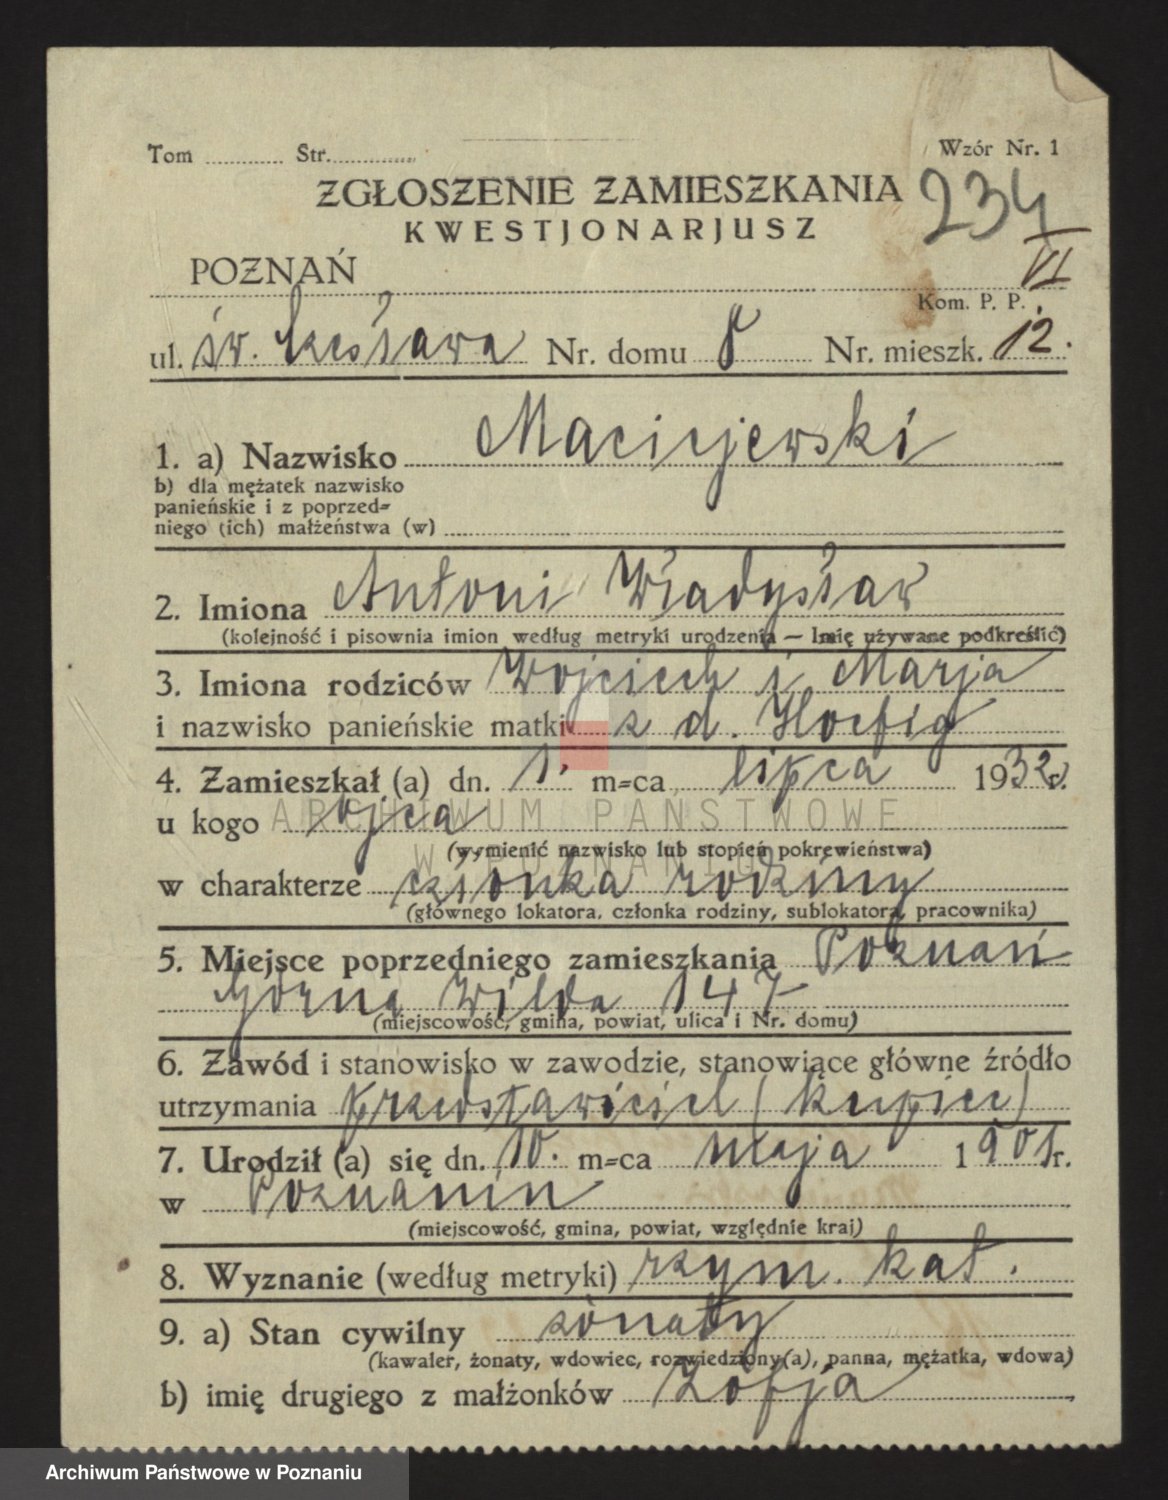 Tom ............ Str...............
Wzór Nr. 1
ZGŁOSZENIE ZAMIESZKANIA
234
KWESTJONARJUSZ
VI
POZNAŃ
Kom. P. P.
ul. św. Czesława Nr. domu 8 Nr. mieszk. 12.
1. a) Nazwisko Maciejewski
b) dla mężatek nazwisko
panieńskie i z poprzed=
niego (ich) małżeństwa (w)
2. Imiona Antoni Władysław
(kolejność i pisownia imion według metryki urodzenia — Imię używane podkreślić)
3. Imiona rodziców Wojciech i Marja
i nazwisko panieńskie matki z d. Hoefig
4. Zamieszkał (a) dn. 1. m=ca lipca 1932 r.
u kogo ojca
ARCHIWUM PAŃSTWOWE
(wymienić nazwisko lub stopień pokrewieństwa)
W POZNANIU
w charakterze członka rodziny
(głównego lokatora, członka rodziny, sublokatora, pracownika)
5. Miejsce poprzedniego zamieszkania Poznań
Górna Wilda 147
(miejscowość, gmina, powiat, ulica i Nr. domu)
6. Zawód i stanowisko w zawodzie, stanowiące główne źródło
utrzymania przedstawiciel (kupiec)
7. Urodził (a) się dn. 10. m=ca maja 1901 r.
w Poznaniu
(miejscowość, gmina, powiat, względnie kraj)
8. Wyznanie (według metryki) rzym. kat.
9. a) Stan cywilny żonaty
(kawaler, żonaty, wdowiec, rozwiedziony(a), panna, mężatka, wdowa)
b) imię drugiego z małżonków Zofja
Archiwum Państwowe w Poznaniu